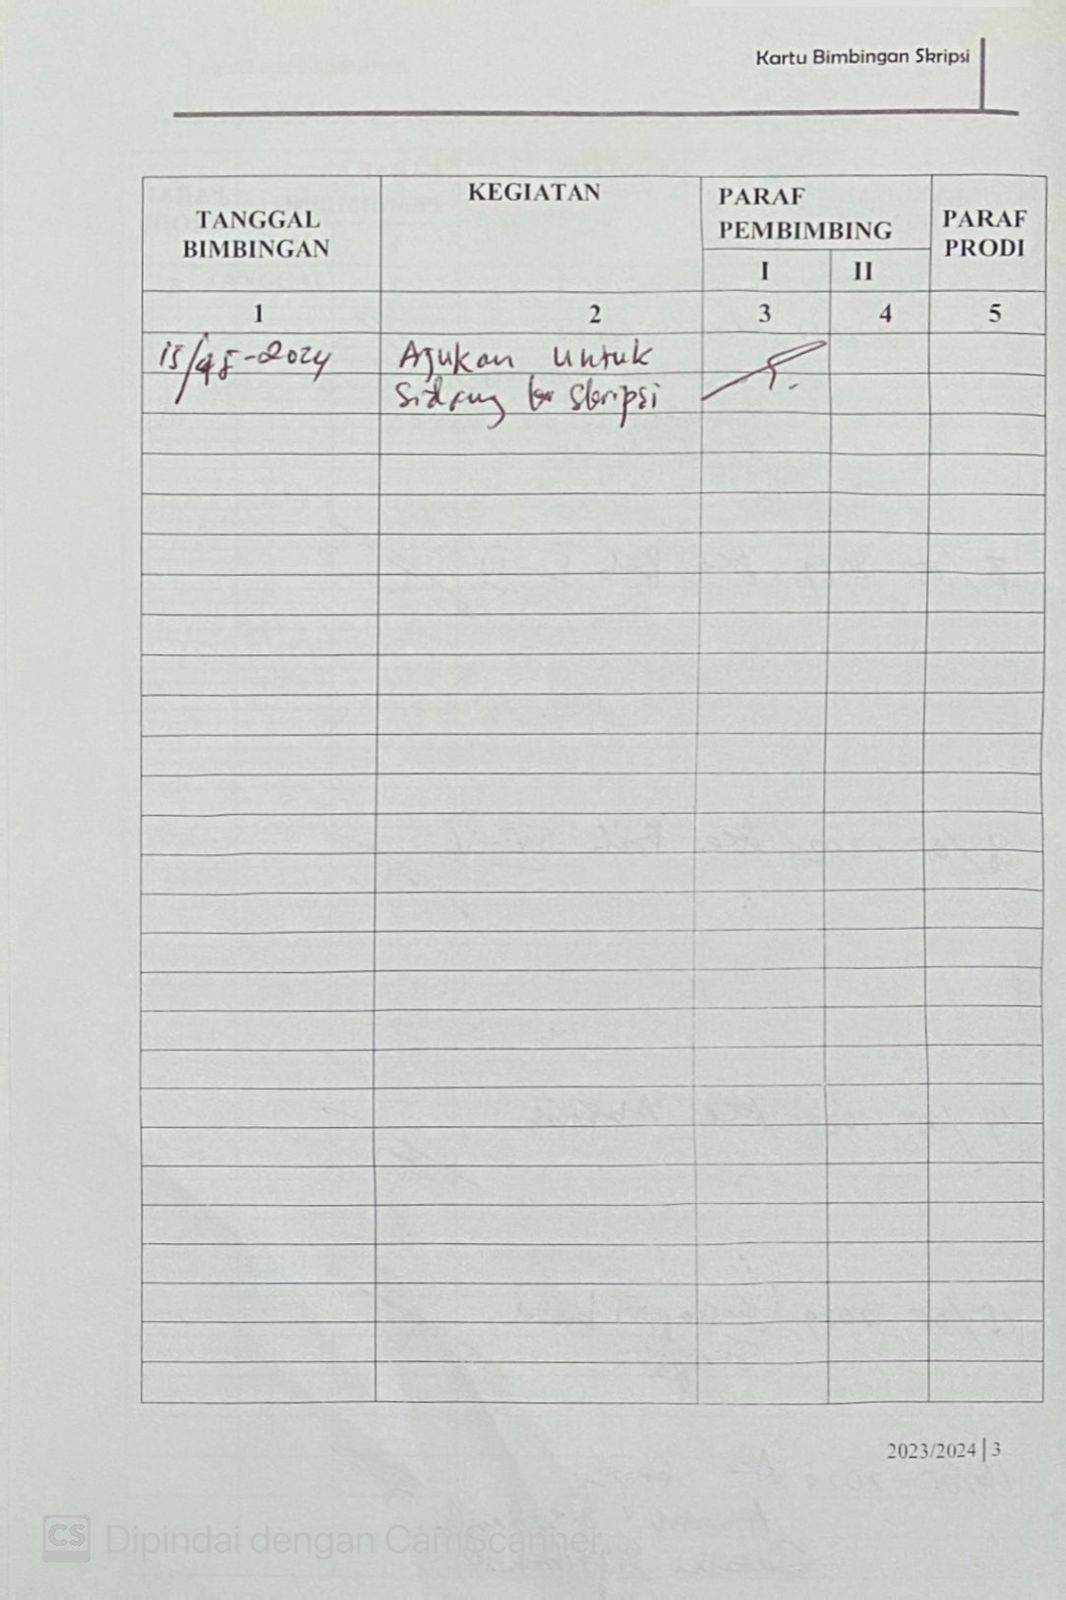 Kartu Bimbingan Skripsi
TANGGAL BIMBINGAN
KEGIATAN
PARAF PEMBIMBING
I
II
PARAF PRODI
1
2
3
4
5
Ajukan untuk
Sidang skripsi
2023/2024 | 3
CS Dipindai dengan CamScanner